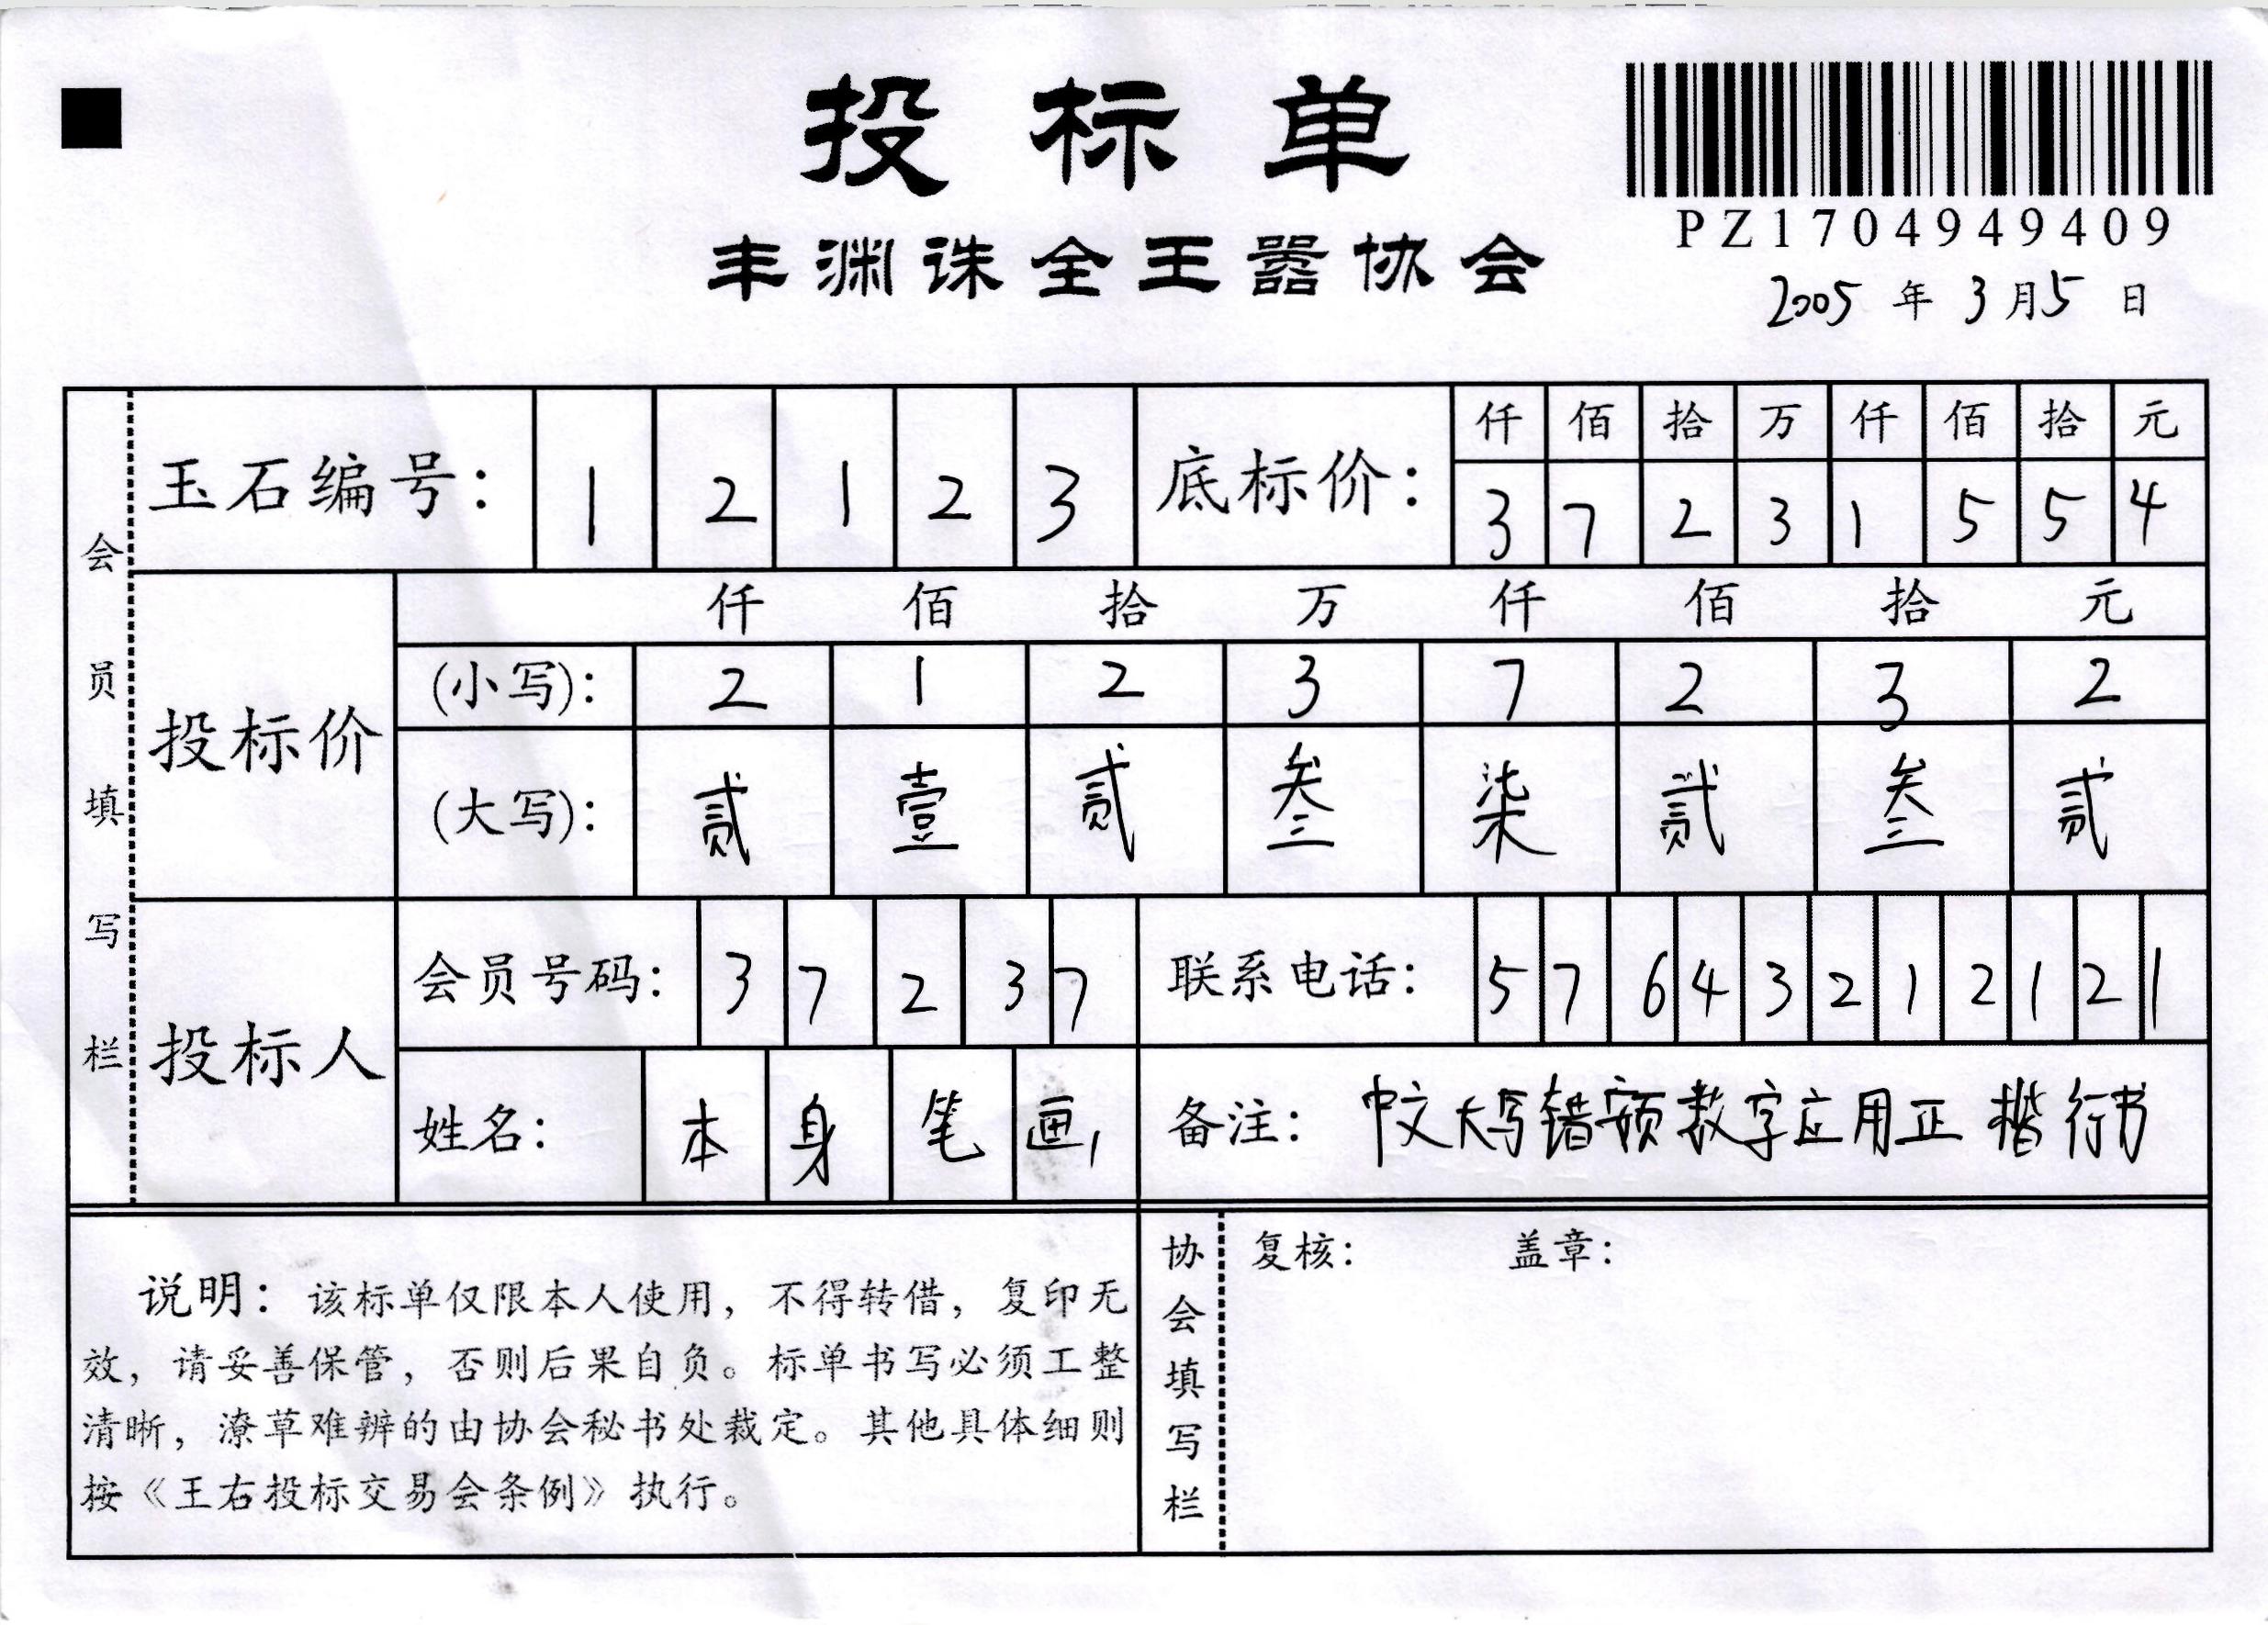 投标单
丰渊诛全王嚣协会
PZ1704949409
2005 年 3 月 5 日
会员填写栏
玉石编号： 1 2 1 2 3
底标价： 仟 佰 拾 万 仟 佰 拾 元
3 7 2 3 1 5 5 4
投标价
仟 佰 拾 万 仟 佰 拾 元
(小写)： 2 1 2 3 7 2 3 2
(大写)： 贰 壹 贰 叁 柒 贰 叁 贰
投标人
会员号码： 3 7 2 3 7
联系电话： 5 7 6 4 3 2 1 2 1 2 1
姓名： 本 身 笔 画,
备注： 中文大写错额数字应用正楷行书
说明：该标单仅限本人使用，不得转借，复印无
效，请妥善保管，否则后果自负。标单书写必须工整
清晰，潦草难辨的由协会秘书处裁定。其他具体细则
按《王右投标交易会条例》执行。
协会填写栏
复核： 盖章：